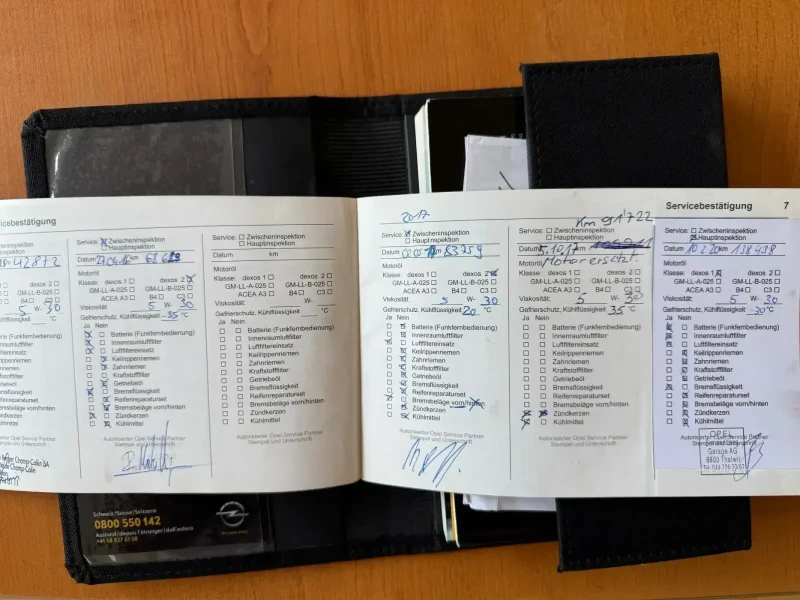 Servicebestätigung
Service: Zwischeninspektion
Hauptinspektion
km 68 689
Motoröl
Klasse: dexos 1 dexos 2
GM-LL-A-025 GM-LL-B-025
ACEA A3 B4 C3
Viskosität: 5 W- 30
Gefrierschutz, Kühlflüssigkeit -35 °C
Ja Nein
Batterie (Funkfernbedienung)
Innenraumluftfilter
Luftfiltereinsatz
Keilrippenriemen
Zahnriemen
Kraftstofffilter
Getriebeöl
Bremsflüssigkeit
Reifenreparaturset
Bremsbeläge vorn/hinten
Zündkerzen
Kühlmittel
Autorisierter Opel Service Partner
Stempel und Unterschrift
Service: Zwischeninspektion
Hauptinspektion
Datum km
Motoröl
Klasse: dexos 1 dexos 2
GM-LL-A-025 GM-LL-B-025
ACEA A3 B4 C3
Viskosität: W-
Gefrierschutz, Kühlflüssigkeit °C
Ja Nein
Batterie (Funkfernbedienung)
Innenraumluftfilter
Luftfiltereinsatz
Keilrippenriemen
Zahnriemen
Kraftstofffilter
Getriebeöl
Bremsflüssigkeit
Reifenreparaturset
Bremsbeläge vorn/hinten
Zündkerzen
Kühlmittel
Autorisierter Opel Service Partner
Stempel und Unterschrift
2017
Service: Zwischeninspektion
Hauptinspektion
Datum km 83759
Motoröl
Klasse: dexos 1 dexos 2
GM-LL-A-025 GM-LL-B-025
ACEA A3 B4 C3
Viskosität: 5 W- 30
Gefrierschutz, Kühlflüssigkeit 20 °C
Ja Nein
Batterie (Funkfernbedienung)
Innenraumluftfilter
Luftfiltereinsatz
Keilrippenriemen
Zahnriemen
Kraftstofffilter
Getriebeöl
Bremsflüssigkeit
Reifenreparaturset
Bremsbeläge vorn/hinten
Zündkerzen
Kühlmittel
Autorisierter Opel Service Partner
Stempel und Unterschrift
Km 91'722
Service: Zwischeninspektion
Hauptinspektion
Datum 5.10.17 km
Motoröl Motor ersetzt.
Klasse: dexos 1 dexos 2
GM-LL-A-025 GM-LL-B-025
ACEA A3 B4 C3
Viskosität: 5 W- 30
Gefrierschutz, Kühlflüssigkeit 35 °C
Ja Nein
Batterie (Funkfernbedienung)
Innenraumluftfilter
Luftfiltereinsatz
Keilrippenriemen
Zahnriemen
Kraftstofffilter
Getriebeöl
Bremsflüssigkeit
Reifenreparaturset
Bremsbeläge vorn/hinten
Zündkerzen
Kühlmittel
Autorisierter Opel Service Partner
Stempel und Unterschrift
Servicebestätigung 7
Service: Zwischeninspektion
Hauptinspektion
Datum 10 2 20 km 138 498
Motoröl
Klasse: dexos 1 dexos 2
GM-LL-A-025 GM-LL-B-025
ACEA A3 B4 C3
Viskosität: 5 W- 30
Gefrierschutz, Kühlflüssigkeit -30 °C
Ja Nein
Batterie (Funkfernbedienung)
Innenraumluftfilter
Luftfiltereinsatz
Keilrippenriemen
Zahnriemen
Kraftstofffilter
Getriebeöl
Bremsflüssigkeit
Reifenreparaturset
Bremsbeläge vorn/hinten
Zündkerzen
Kühlmittel
Autorisierter Opel Service Partner
Stempel und Unterschrift
OPEL
Garage AG
8800 Thalwil
Schweiz/Suisse/Svizzera
0800 550 142
Ausland/depuis l'étranger/dall'estero